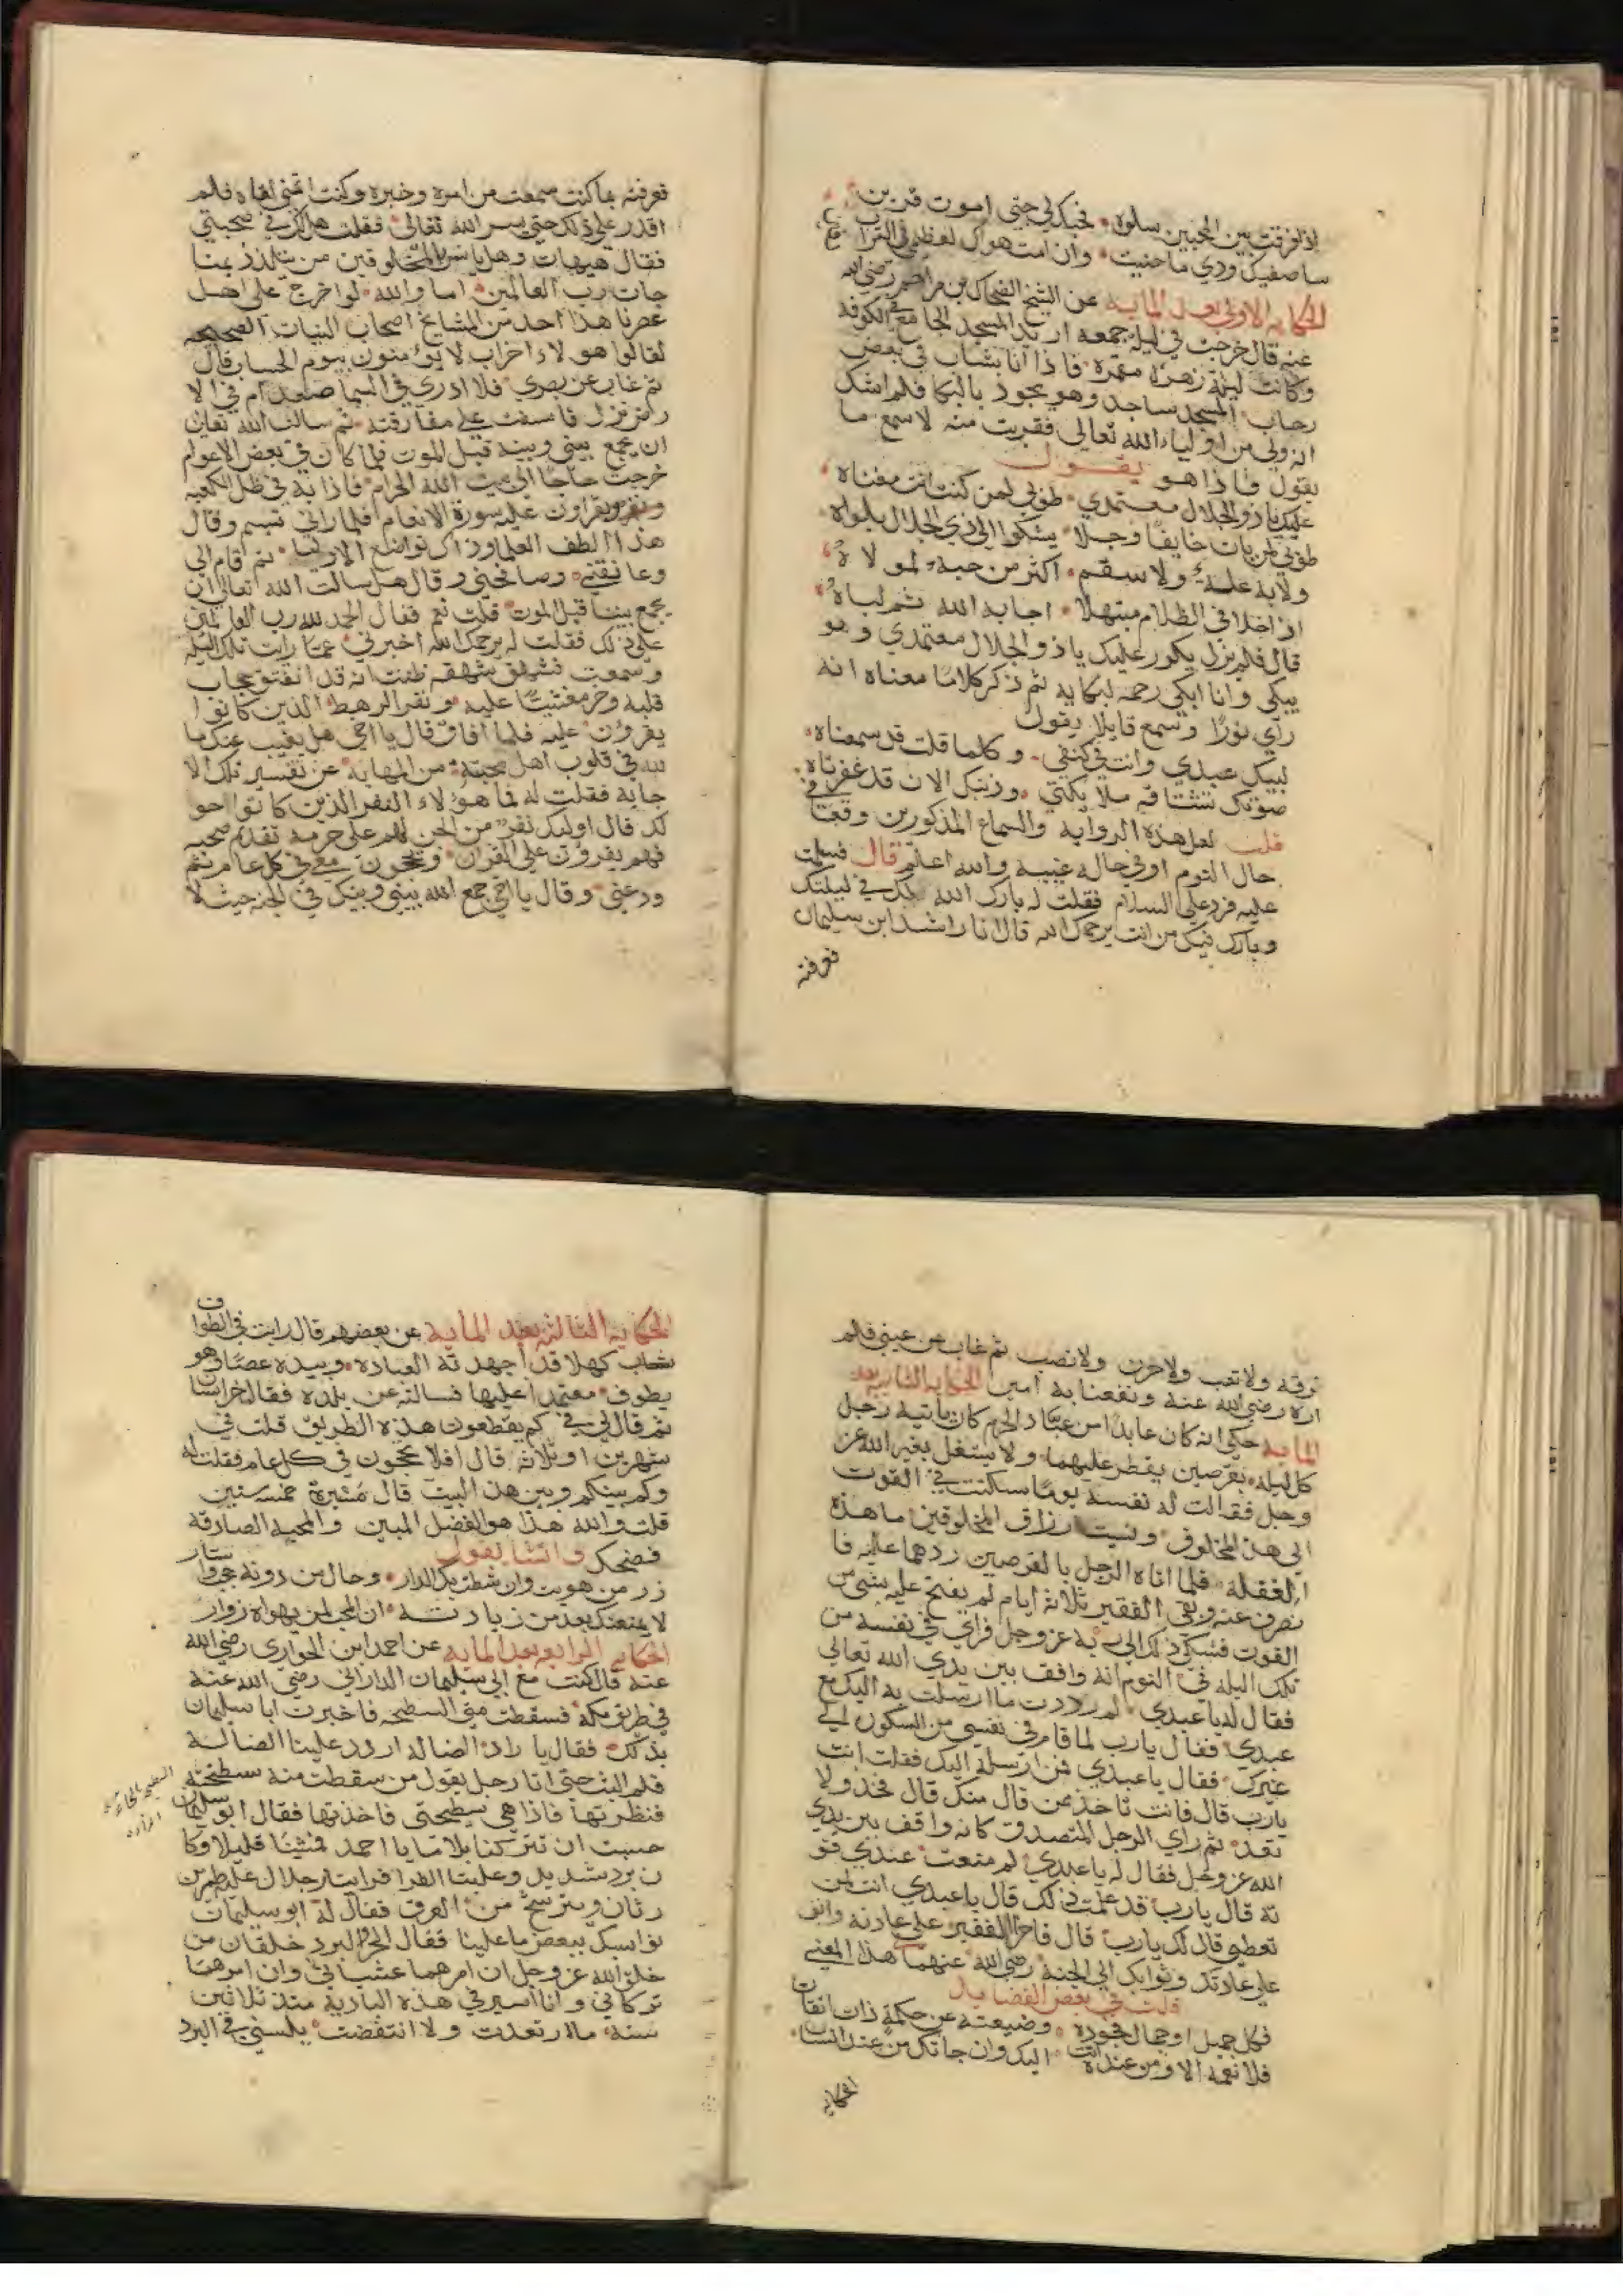 اذا فرقت بين المحبين سلوة فحبك لي حتى اموت قرين
ساصفيك ودي ما حييت وان امت هواك لعظمي في التراب
الحكاية الاولى بعد الماية عن الشيخ الضحاك بن مزاحم رضي الله
عنه قال خرجت في ليلة جمعه اريد المسجد الجامع في الكوفه
وكانت ليلة زهرة مقمرة فاذا انا بشاب في بعض
رحاب المسجد ساجد وهو يجود بالبكا فلم اشك
انه ولي من اولياء الله تعالى فقربت منه لاسمع ما
يقول فاذا هو يقول
عليك ياذو الجلال معتمدي طوبى لمن كنت انت معناه
طوبى لمن بات خايفا وجلا يشكوا الى ذي الجلال بلواه
ولا به علة ولا سقم اكثر من حبه لمولاه
اذا خلا في الظلام مبتهلا اجابه الله ثم لباه
قال فلم يزل يكرر عليك ياذو الجلال معتمدي وهو
يبكي وانا ابكي رحمه لبكايه ثم ذكر كلاما معناه انه
راى نورا وسمع قايلا يقول
لبيك عبدي وانت في كنفي وكلما قلت قد سمعناه
صوتك تشتاقه ملايكتي وذنبك الان قد غفرناه
قلت لعل هذه الرواية والسماع المذكورين وقعتا في
حال النوم او في حاله غيبية والله اعلم قال فسلمت
عليه فرد علي السلام فقلت له بارك الله لك في ليلتك
وبارك فيك من انت يرحمك الله قال انا راشد ابن سليمان
فعرفته
فعرفته بما كنت سمعت من امره وخبره وكنت اتمنى لقاه فلم
اقدر على ذلك حتى يسر الله تعالى فقلت هل لك في صحبتي
فقال هيهات وهل يانس بالمخلوقين من تلذذ بمنا
جات رب العالمين اما والله لو اخرج على اهل
عصرنا هذا احد من المشايخ اصحاب النيات الصحيحه
لقالوا هولاء احزاب لا يؤمنون بيوم الحساب قال
ثم غاب عن بصري فلا ادري في السما صعد ام في الا
رض نزل فاسفت على مفارقته ثم سالت الله تعالى
ان يجمع بيني وبينه قبل الموت فلما كان في بعض الاعوام
خرجت حاجا الى بيت الله الحرام فاذا به في ظل الكعبه
ونفر يقراون عليه سورة الانعام فلما راني تبسم وقال
هذا لطف العلما وذاك تواضع الاوليا ثم قام الي
وعانقني وصافحني وقال هل سالت الله تعالى ان
يجمع بيننا قبل الموت قلت نعم فقال الحمد لله رب العالمين
على ذلك فقلت له يرحمك الله اخبرني عما رايت تلك الليله
وسمعت فشهق شهقه ظننت انه قد انفتق حجاب
قلبه وخر مغشيا عليه ونفر الرهط الذين كانوا
يقرؤن عليه فلما افاق قال يا اخي هل يغيب عنك ما
لله في قلوب اهل محبته من المهابة عن تفسير تلك الا
جابة فقلت له فما هؤلاء النفر الذين كانوا حو
لك قال اوليك نفر من الجن لهم علي حرمة تقدم صحبه
فهم يقرؤن علي القران ويحجون معي في كل عام ثم
ودعني وقال يا اخي جمع الله بيني وبينك في الجنه حيث لا
فرقه ولا تعب ولا حزن ولا نصب ثم غاب عن عيني فلم
اره رضي الله عنه ونفعنا به امين الحكاية الثانية بعد
الماية حكي انه كان عابدا من عباد الحرم كان ياتيه رجل
كل ليلة بقرصين يفطر عليهما ولا يشتغل بغير الله عز
وجل فقالت له نفسه يوما سكنت في القوت
الى هذا المخلوق ونسيت رزاق المخلوقين ما هذه
الغفلة فلما اتاه الرجل بالقرصين ردهما عليه فا
نصرف عنه وبقي الفقير ثلاثة ايام لم يفتح عليه بشي من
القوت فشكى ذلك الى ربه عز وجل فراى في نفسه من
تلك الليله في النوم انه واقف بين يدي الله تعالى
فقال له يا عبدي لم رددت ما ارسلت به اليك مع
عبدي فقال يارب لما قام في نفسي من السكون الى
غيرك فقال يا عبدي فمن ارسله اليك فقلت انت
يارب قال فانت تاخذ ممن قال منك قال فخذ ولا
تعد ثم راى الرجل المتصدق كانه واقف بين يدي
الله عز وجل فقال له يا عبدي لم منعت عبدي قو
ته قال يارب قد علمت ذلك قال يا عبدي انت لمن
تعطي قال لك يارب قال فاجر الفقير على عادته وانت
على عادتك وثوابك الى الجنة رضي الله عنهما هذا المعنى
قلت في بعض القصايد
فكل جميل او جمال فجوده وضيعته عن حكمة ذات اتقان
فلا نعمة الا ومن عنده اتت اليك وان جاتك من عند انسان
الحكاية
الحكاية الثالثة بعد الماية عن بعضهم قال رايت في الطواف
شاب كهلا قد اجهدته العباده وبيده عصا وهو
يطوف معتمدا عليها فسالته عن بلده فقال خراسان
ثم قال لي في كم يقطعون هذه الطريق قلت في
شهرين او ثلاثة قال افلا يحجون في كل عام فقلت له
وكم بينكم وبين هذا البيت قال مسيرة خمس سنين
قلت والله هذا هو الفضل المبين والمحبه الصادقة
فضحك وانشا يقول
زر من هويت وان شطت بك الدار وحال من دونه حجب واستار
لا يمنعنك بعد من زيارته ان المحب لمن يهواه زوار
الحكاية الرابعه بعد الماية عن احمد ابن الحواري رضي الله
عنه قال كنت مع ابي سليمان الداراني رضي الله عنه
في طريق مكة فسقطت مني السطيحه فاخبرت ابا سليمان
بذلك فقال يا راد الضاله اردد علينا الضالة
فلم البث حتى اتا رجل يقول من سقطت منه سطيحته
فنظرتها فاذا هي سطيحتي فاخذتها فقال ابو سليمان
حسبت ان تتركنا بلا ما يا احمد فمشينا قليلا وكا
ن برد شديد وعلينا الفرا فرايت رجلا عليه طمرين
رثان ويترشح من العرق فقال له ابو سليمان
نواسيك ببعض ما علينا فقال الحر والبرد خلقان من
خلق الله عز وجل ان امرهما غشياني وان امرهما
تركاني وانا اسير في هذه البادية منذ ثلاثين
سنة ما ارتعدت ولا انتفضت يلبسني في البرد